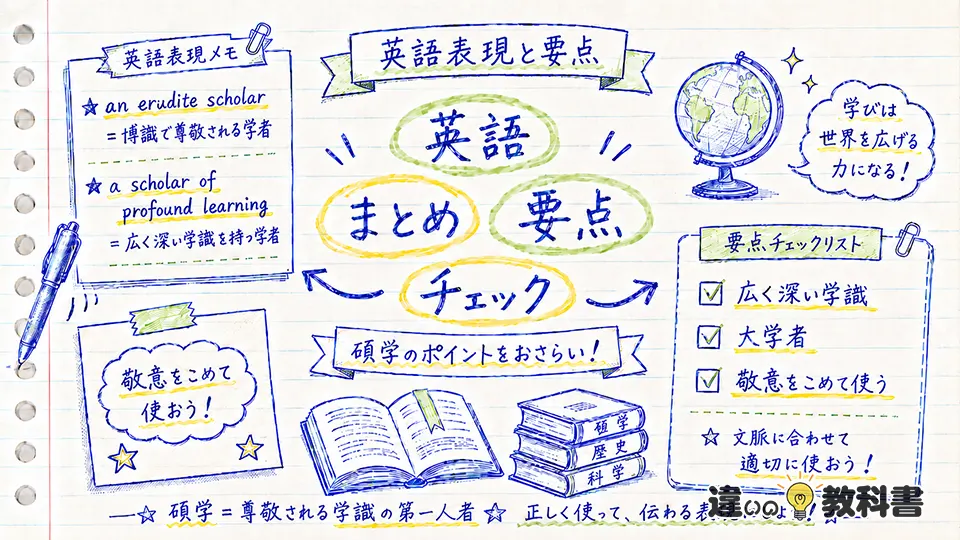 英語表現と要点
英語表現メモ
☆ an erudite scholar
= 博識で尊敬される学者
☆ a scholar of
profound learning
= 広く深い学識を持つ学者
英語
まとめ
要点
チェック
碩学のポイントをおさらい!
学びは
世界を広げる
力になる!
要点チェックリスト
☑ 広く深い学識
☑ 大学者
☑ 敬意をこめて使う
☆ 文脈に合わせて
適切に使おう!
敬意をこめて
使おう!
碩学
歴史
科学
☆ 碩学 = 尊敬される学識の第一人者 ☆ 正しく使って、伝わる表
違いの教科書